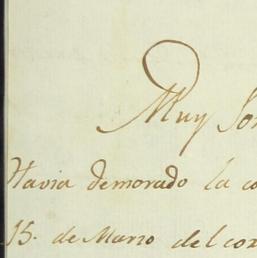 Muy Sor
Havia demorado la co
15. de Marzo del cor